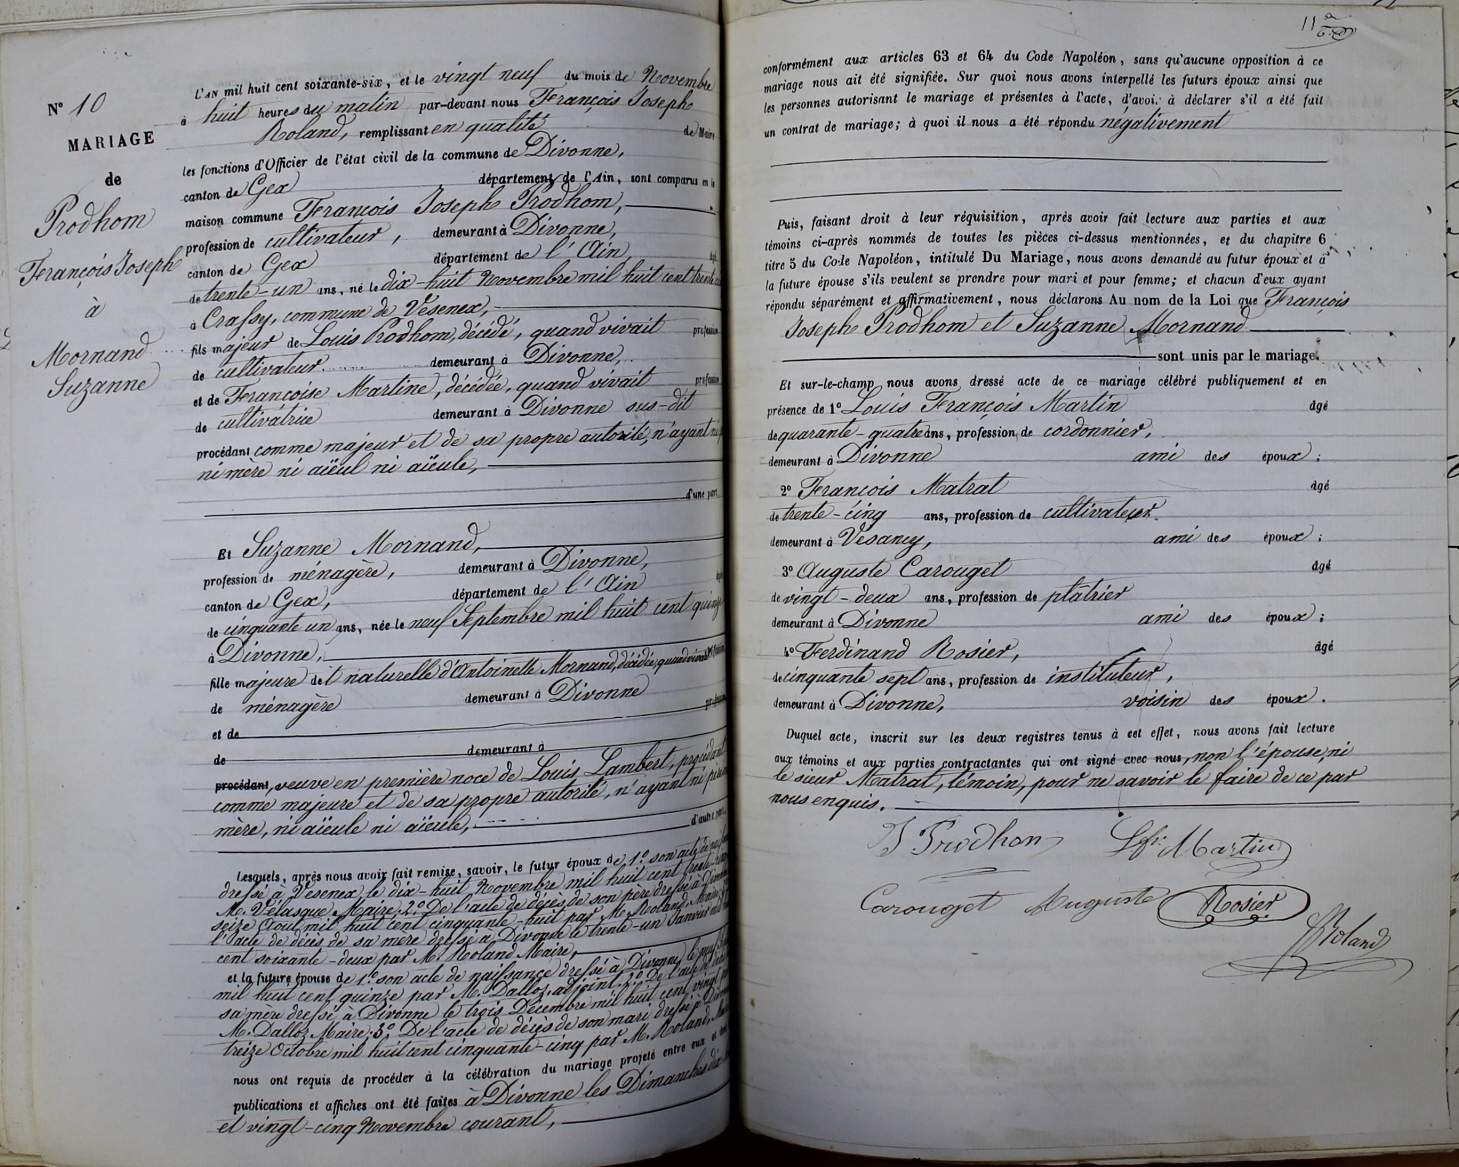 N° 10
MARIAGE
de
Prodhom
François Joseph
à
Mornand
Suzanne
L'AN mil huit cent soixante-six, et le vingt neuf du mois de Novembre
à huit heures du matin par-devant nous François Joseph
Roland, remplissant en qualité de Maire
les fonctions d'Officier de l'état civil de la commune de Divonne,
canton de Gex département de l'Ain, sont comparus en la
maison commune François Joseph Prodhom,
profession de cultivateur, demeurant à Divonne,
canton de Gex département de l'Ain, âgé
de trente-un ans, né le dix-huit Novembre mil huit cent trente
à Crassy, commune de Vesenex,
fils majeur de Louis Prodhom, décédé, quand vivait profession
de cultivateur demeurant à Divonne,
et de Françoise Martine, décédée, quand vivait profession
de cultivatrice demeurant à Divonne sus-dit
procédant comme majeur et de sa propre autorité, n'ayant ni
ni mère ni aïeul ni aïeule,
d'une part.
Et Suzanne Mornand,
profession de ménagère, demeurant à Divonne,
canton de Gex, département de l'Ain
de cinquante un ans, née le neuf Septembre mil huit cent quinze
à Divonne,
fille majeure det naturelle d'Antoinette Mornand, décédée, quand vivait profession
de ménagère demeurant à Divonne
et de profession
de demeurant à
procédant, veuve en première noce de Louis Lambert, procédant
comme majeure et de sa propre autorité, n'ayant ni père
mère, ni aïeule ni aïeule, d'autre part
Lesquels, après nous avoir fait remise, savoir, le futur époux de 1° son acte de
dressé à Vesenex le dix-huit Novembre mil huit cent trente
M. Vélasque Maire; 2° De l'acte de décès de son père dressé à
seize Août mil huit cent cinquante-huit par M. Roland, Maire
l'acte de décès de sa mère dressé à Divonne le trente-un Janvier mil
cent soixante-deux par M. Roland Maire,
et la future épouse de 1° son acte de naissance dressé à Divonne le neuf
mil huit cent quinze par M. Dalloz, adjoint; 2° De l'acte de
sa mère dressé à Divonne le trois Décembre mil huit cent vingt
M. Dalloz Maire; 3° De l'acte de décès de son mari dressé à
treize Octobre mil huit cent cinquante-cinq par M. Roland,
nous ont requis de procéder à la célébration du mariage projeté entre eux et
publications et affiches ont été faites à Divonne les Dimanches dix
et vingt-cinq Novembre courant,
11
conformément aux articles 63 et 64 du Code Napoléon, sans qu'aucune opposition à ce
mariage nous ait été signifiée. Sur quoi nous avons interpellé les futurs époux ainsi que
les personnes autorisant le mariage et présentes à l'acte, d'avoir à déclarer s'il a été fait
un contrat de mariage; à quoi il nous a été répondu négativement
Puis, faisant droit à leur réquisition, après avoir fait lecture aux parties et aux
témoins ci-après nommés de toutes les pièces ci-dessus mentionnées, et du chapitre 6
titre 5 du Code Napoléon, intitulé Du Mariage, nous avons demandé au futur époux et à
la future épouse s'ils veulent se prendre pour mari et pour femme; et chacun d'eux ayant
répondu séparément et affirmativement, nous déclarons Au nom de la Loi que François
Joseph Prodhom et Suzanne Mornand
sont unis par le mariage.
Et sur-le-champ nous avons dressé acte de ce mariage célébré publiquement et en
présence de 1° Louis François Martin âgé
de quarante-quatre ans, profession de cordonnier,
demeurant à Divonne ami des époux;
2° François Matrat âgé
de trente-cinq ans, profession de cultivateur
demeurant à Vesancy, ami des époux;
3° Auguste Carouget âgé
de vingt-deux ans, profession de plâtrier
demeurant à Divonne ami des époux;
4° Ferdinand Rosier, âgé
de cinquante sept ans, profession de instituteur,
demeurant à Divonne, voisin des époux.
Duquel acte, inscrit sur les deux registres tenus à cet effet, nous avons fait lecture
aux témoins et aux parties contractantes qui ont signé avec nous, non l'épouse, ni
le sieur Matrat, témoin, pour ne savoir le faire de ce par
nous enquis.
J Prodhon Lfs Martin
Carouget Auguste Rosier
Roland